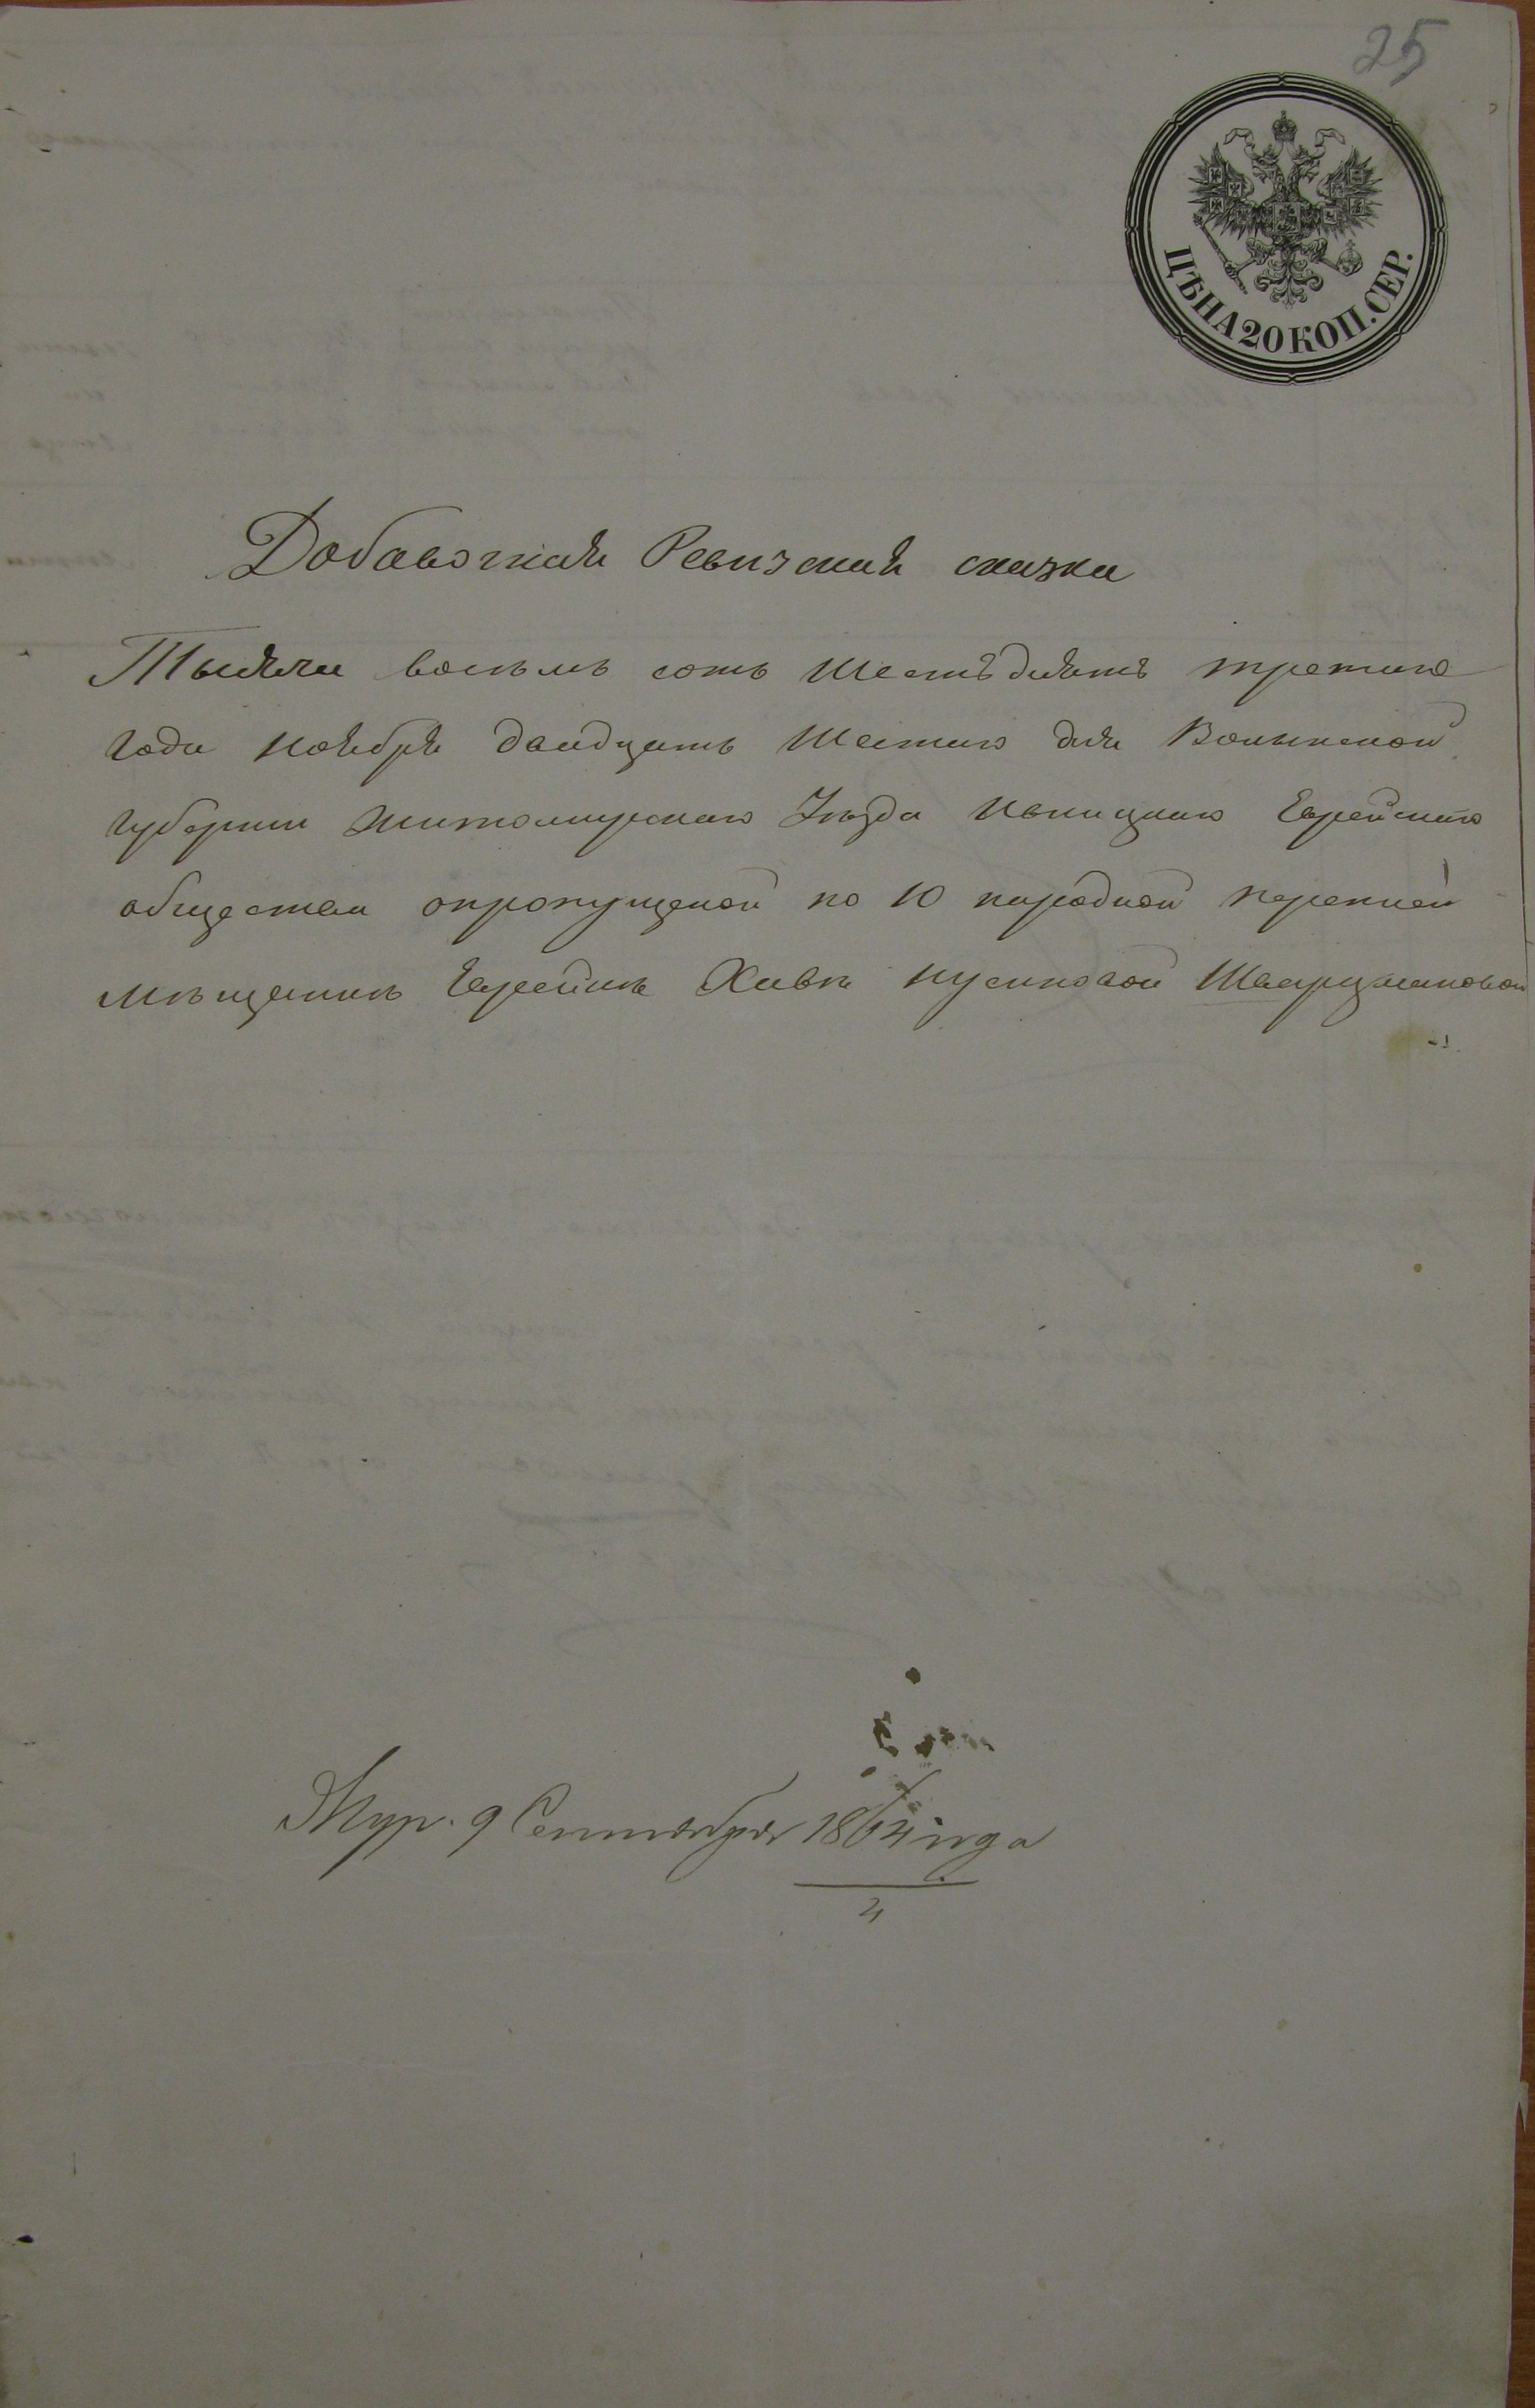 25
ЦѢНА 20 КОП. СЕР.
Добавочная Ревизская сказка
Тысяча восемь сотъ шестьдесятъ третьго
года ноября двадцать шестаго дня Волынской
губернии Житомирскаго Уѣзда Ивницкаго Еврейскаго
общества опропущеной по 10 народной переписи
мѣщанкѣ Еврейкѣ Хивѣ Нусиновой Шварцмановой
Жур. 9 Сентября 1864 года
4